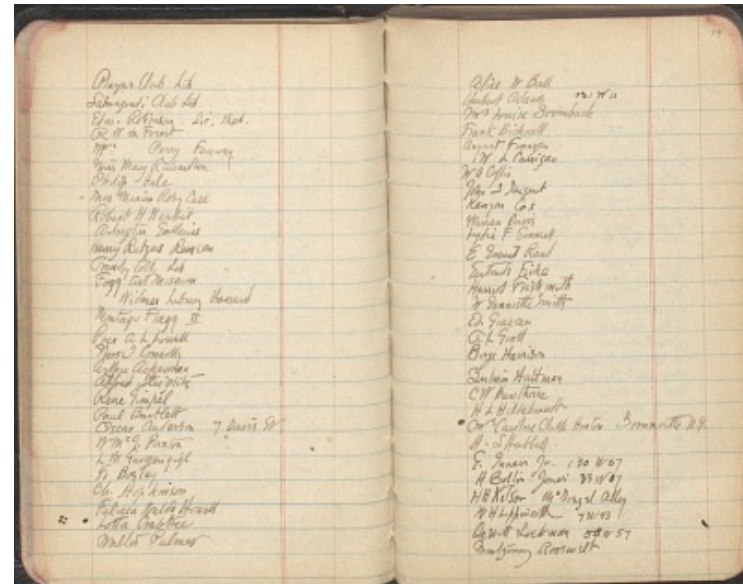 Players Club Lib
Salmagundi Club Lib
Edw. Robinson. Dir. Met.
R W de Forest
Mr Perry
Miss Mary Richardson
Philip Hale
Miss Minnie Case
Robert H Nesbit
Arlington Galleries
Henry Rutgers Remsen
Trinity Coll. Lib
Fogg Art Museum
Widener Library Harvard
Montague Flagg II
Pres A. L. Lowell
Connolly
Arthur Ackerman
Alfred Stieglitz
Rene Gimpel
Paul Bartlett
Anderson 7 Davis St
W McG. Paxton
Fr. Bosley
Ch. Hopkinson
Felicia Waldo Howell
Lotta Crabtree
Walter Palmer
14
Alice W Ball
Herbert Adams 131 W 11
Mrs Louise Brumback
Frank Bicknell
August Franzen
W. L. Carrigan
W A Coffin
John S Sargent
Kenyon Cox
Warren Davis
Lydia F Emmet
E. Emmet Rand
Gertrude Fiske
Harriet Frishmuth
F Dunnette Smith
Ed. Greacen
A L Groll
Birge Harrison
Hartman
C W Hawthorne
H L Hildebrandt
Mrs Caroline Clark Bronxville N.Y.
H. S Hubbell
G. Inness Jr. 130 W 67
H Bolton Jones 33 W 67
H H Kitson McDougal Alley
W H Lippincott 7 W 43
DeWitt Lockman 58 W 57
Montgomery Roosevelt